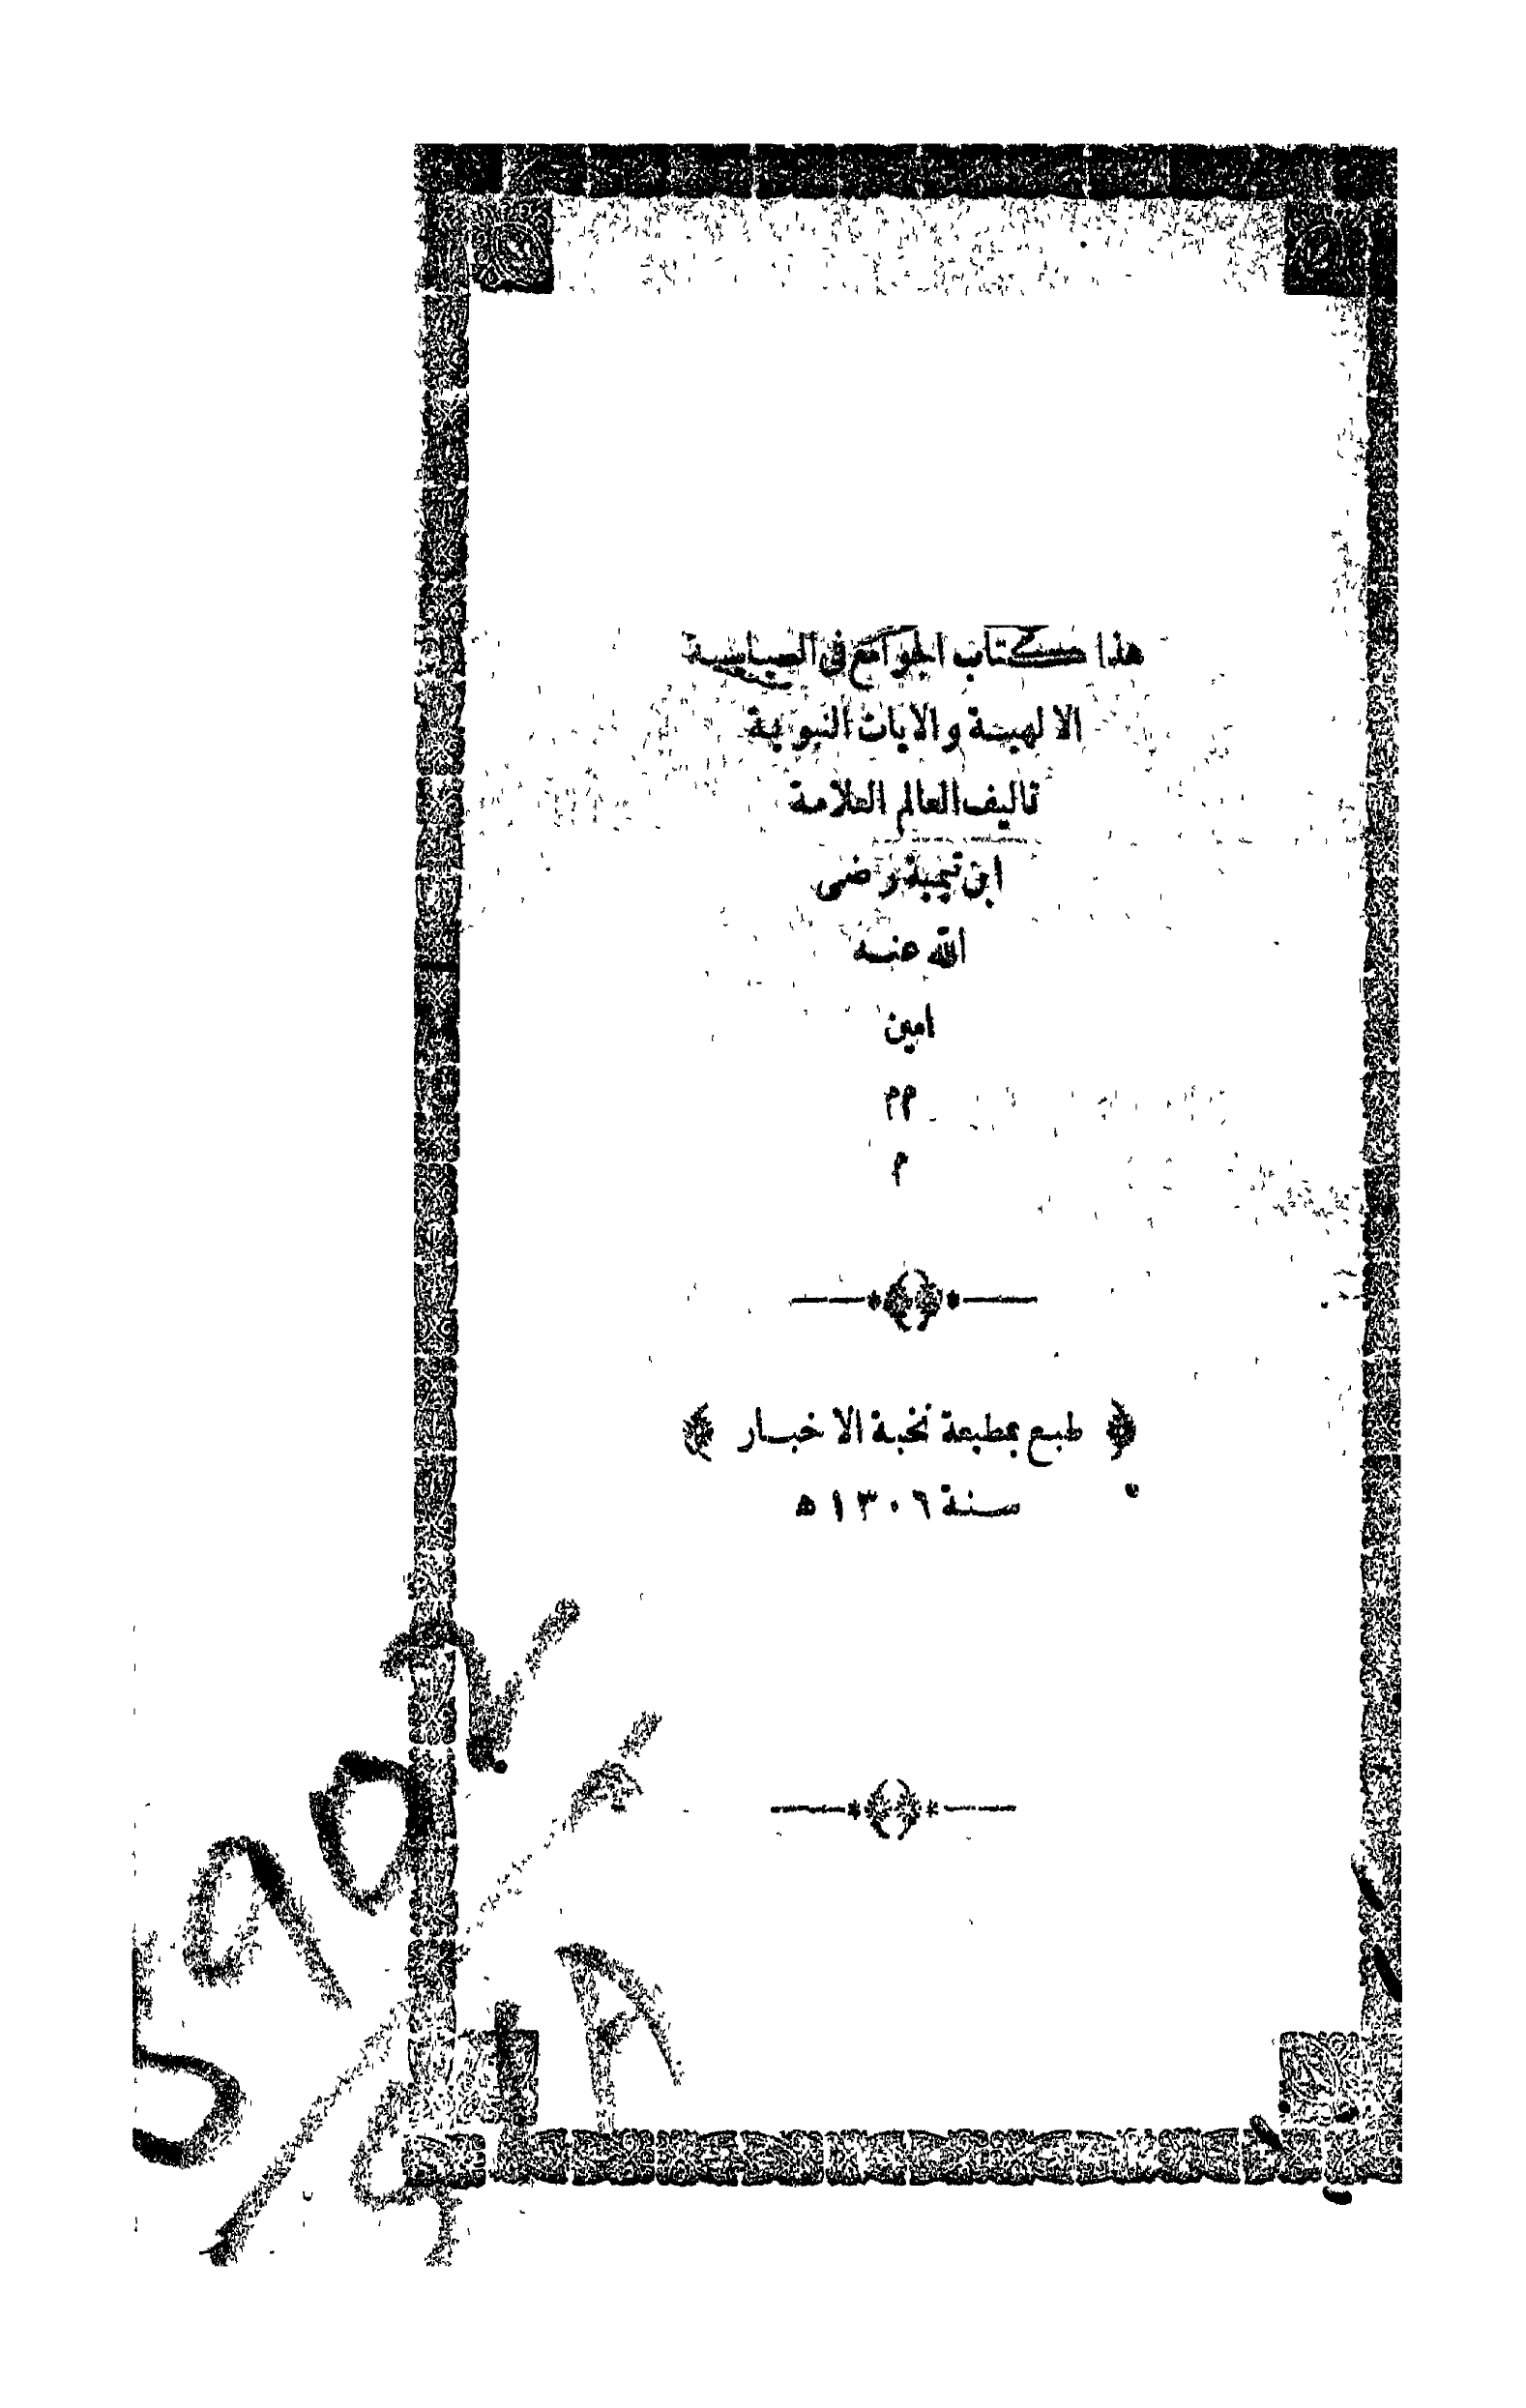 هذا كتاب الجوامع في السياسة
الالهية والايات النبوية
تاليف العالم العلامة
ابن تيمية رضى
الله عنه
امين
م م
م
﴿ طبع بمطبعة نخبة الاخبار ﴾
سنة ١٣٠٦ ه